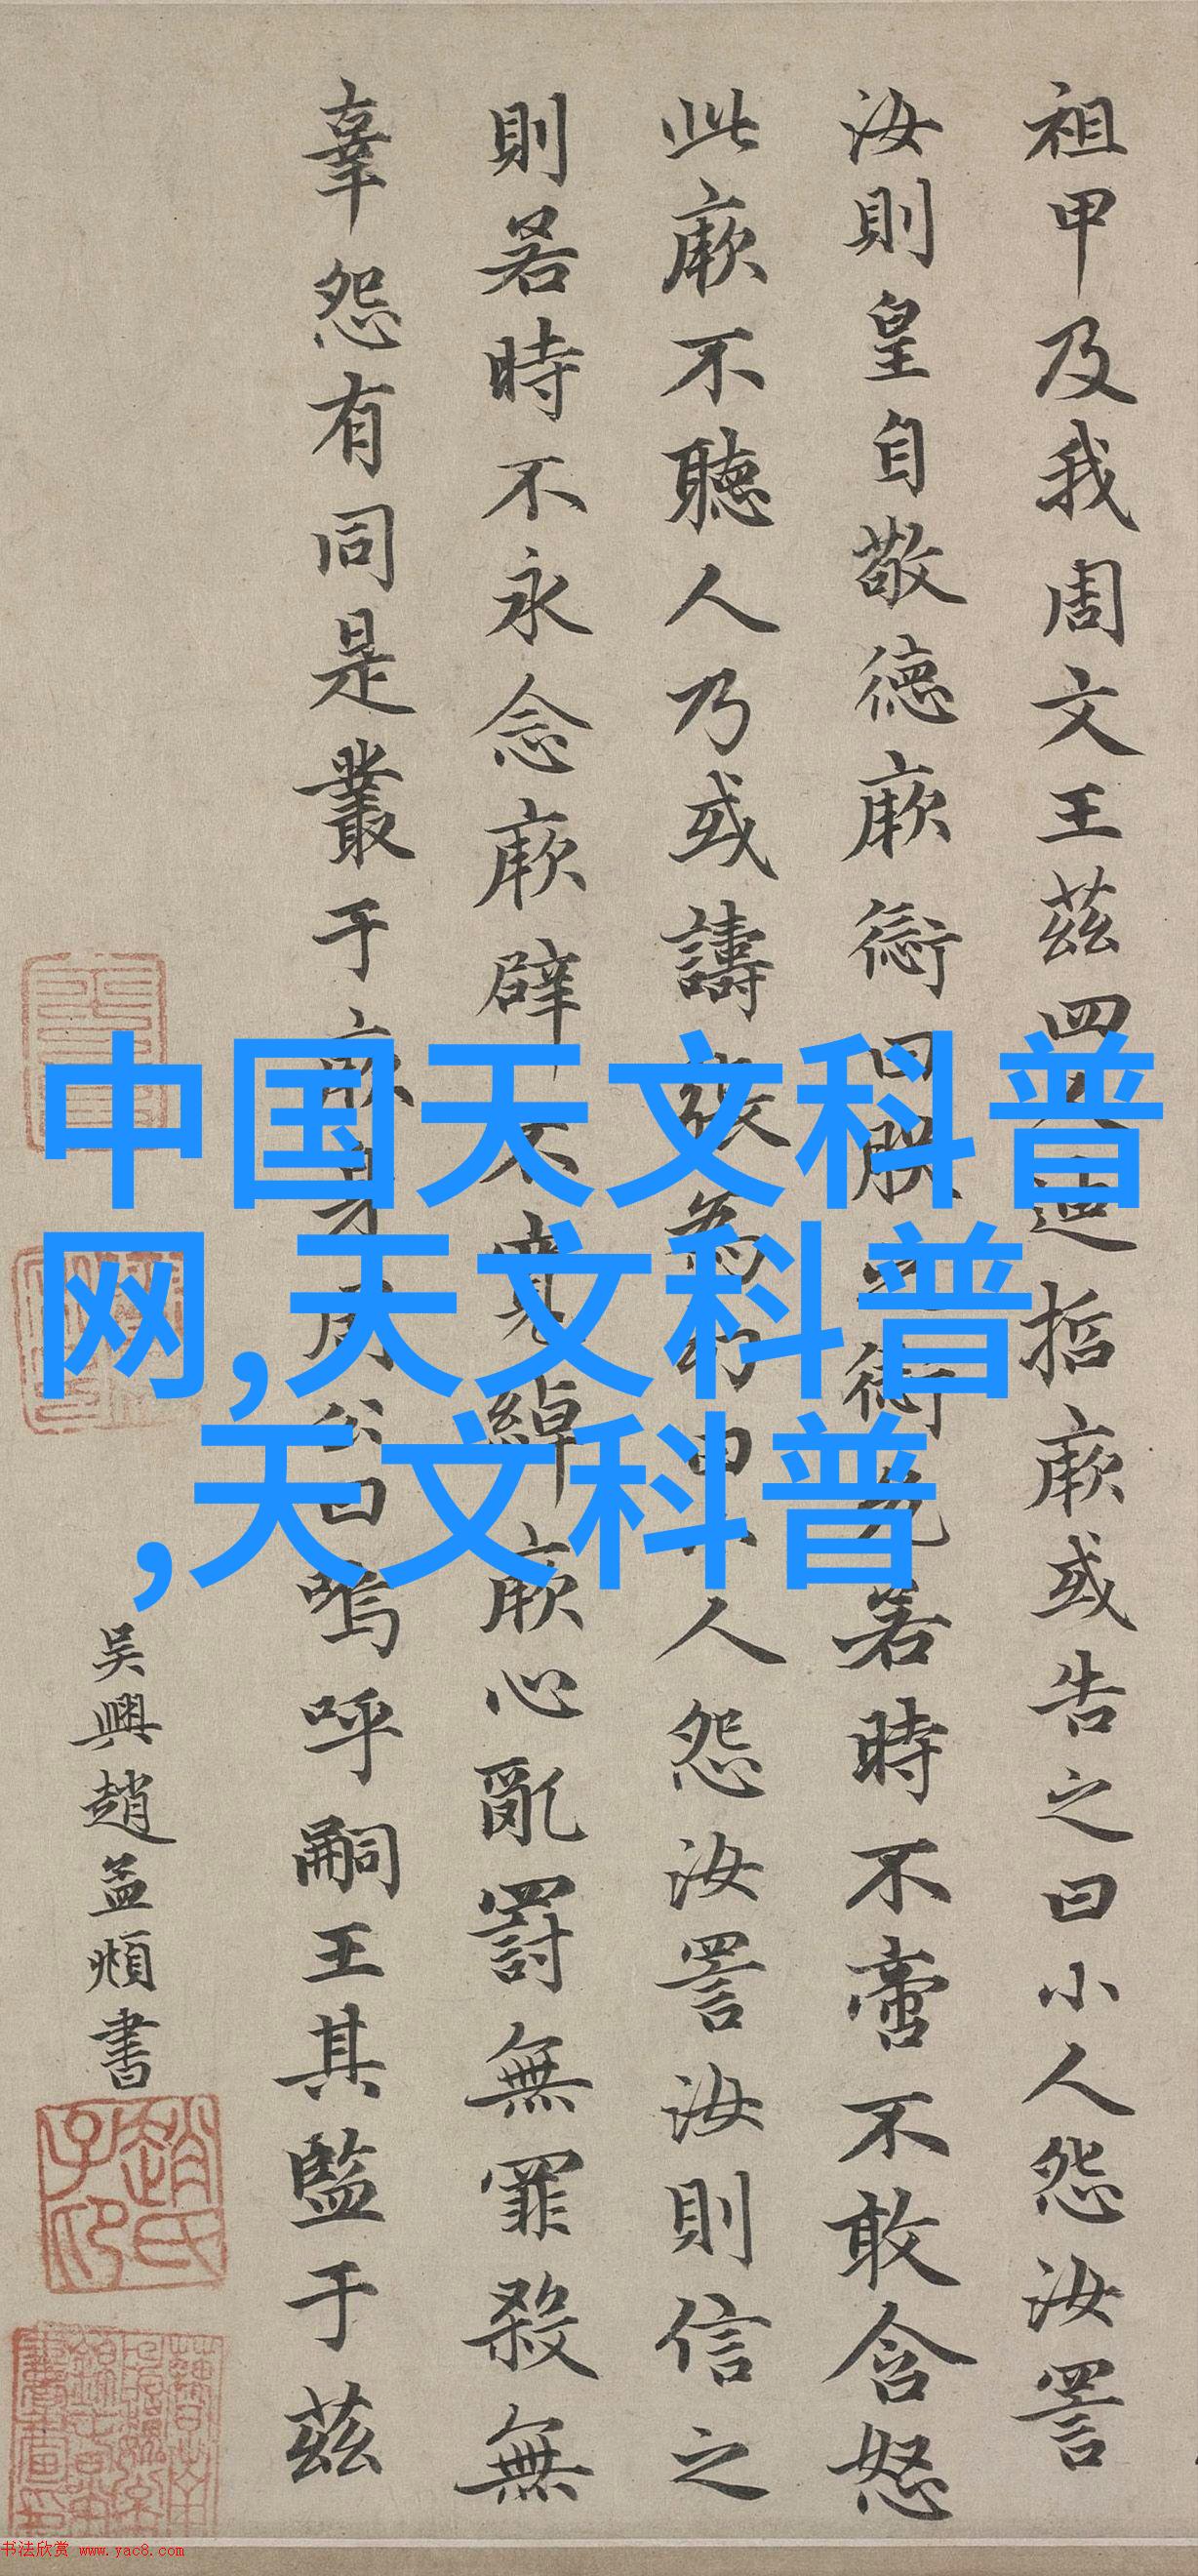 祖甲及我周文王茲四人迪哲厥或告之曰小人怨汝詈
汝則皇自敬德厥愆曰朕之愆允若時不啻不敢含怒
此厥不聽人乃或譸張為幻曰小人怨汝詈汝則信之
則若時不永念厥辟不寬綽厥心亂罰無罪殺無
辜怨有同是叢于厥身周公曰嗚呼嗣王其監于茲
吳興趙孟頫書
趙氏子印
中国天文科普
网,天文科普
,天文科普
书法欣赏 www.yac8.com